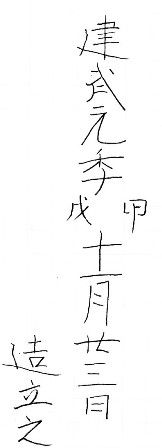 建武元季甲戌十一月廿三日
造立之